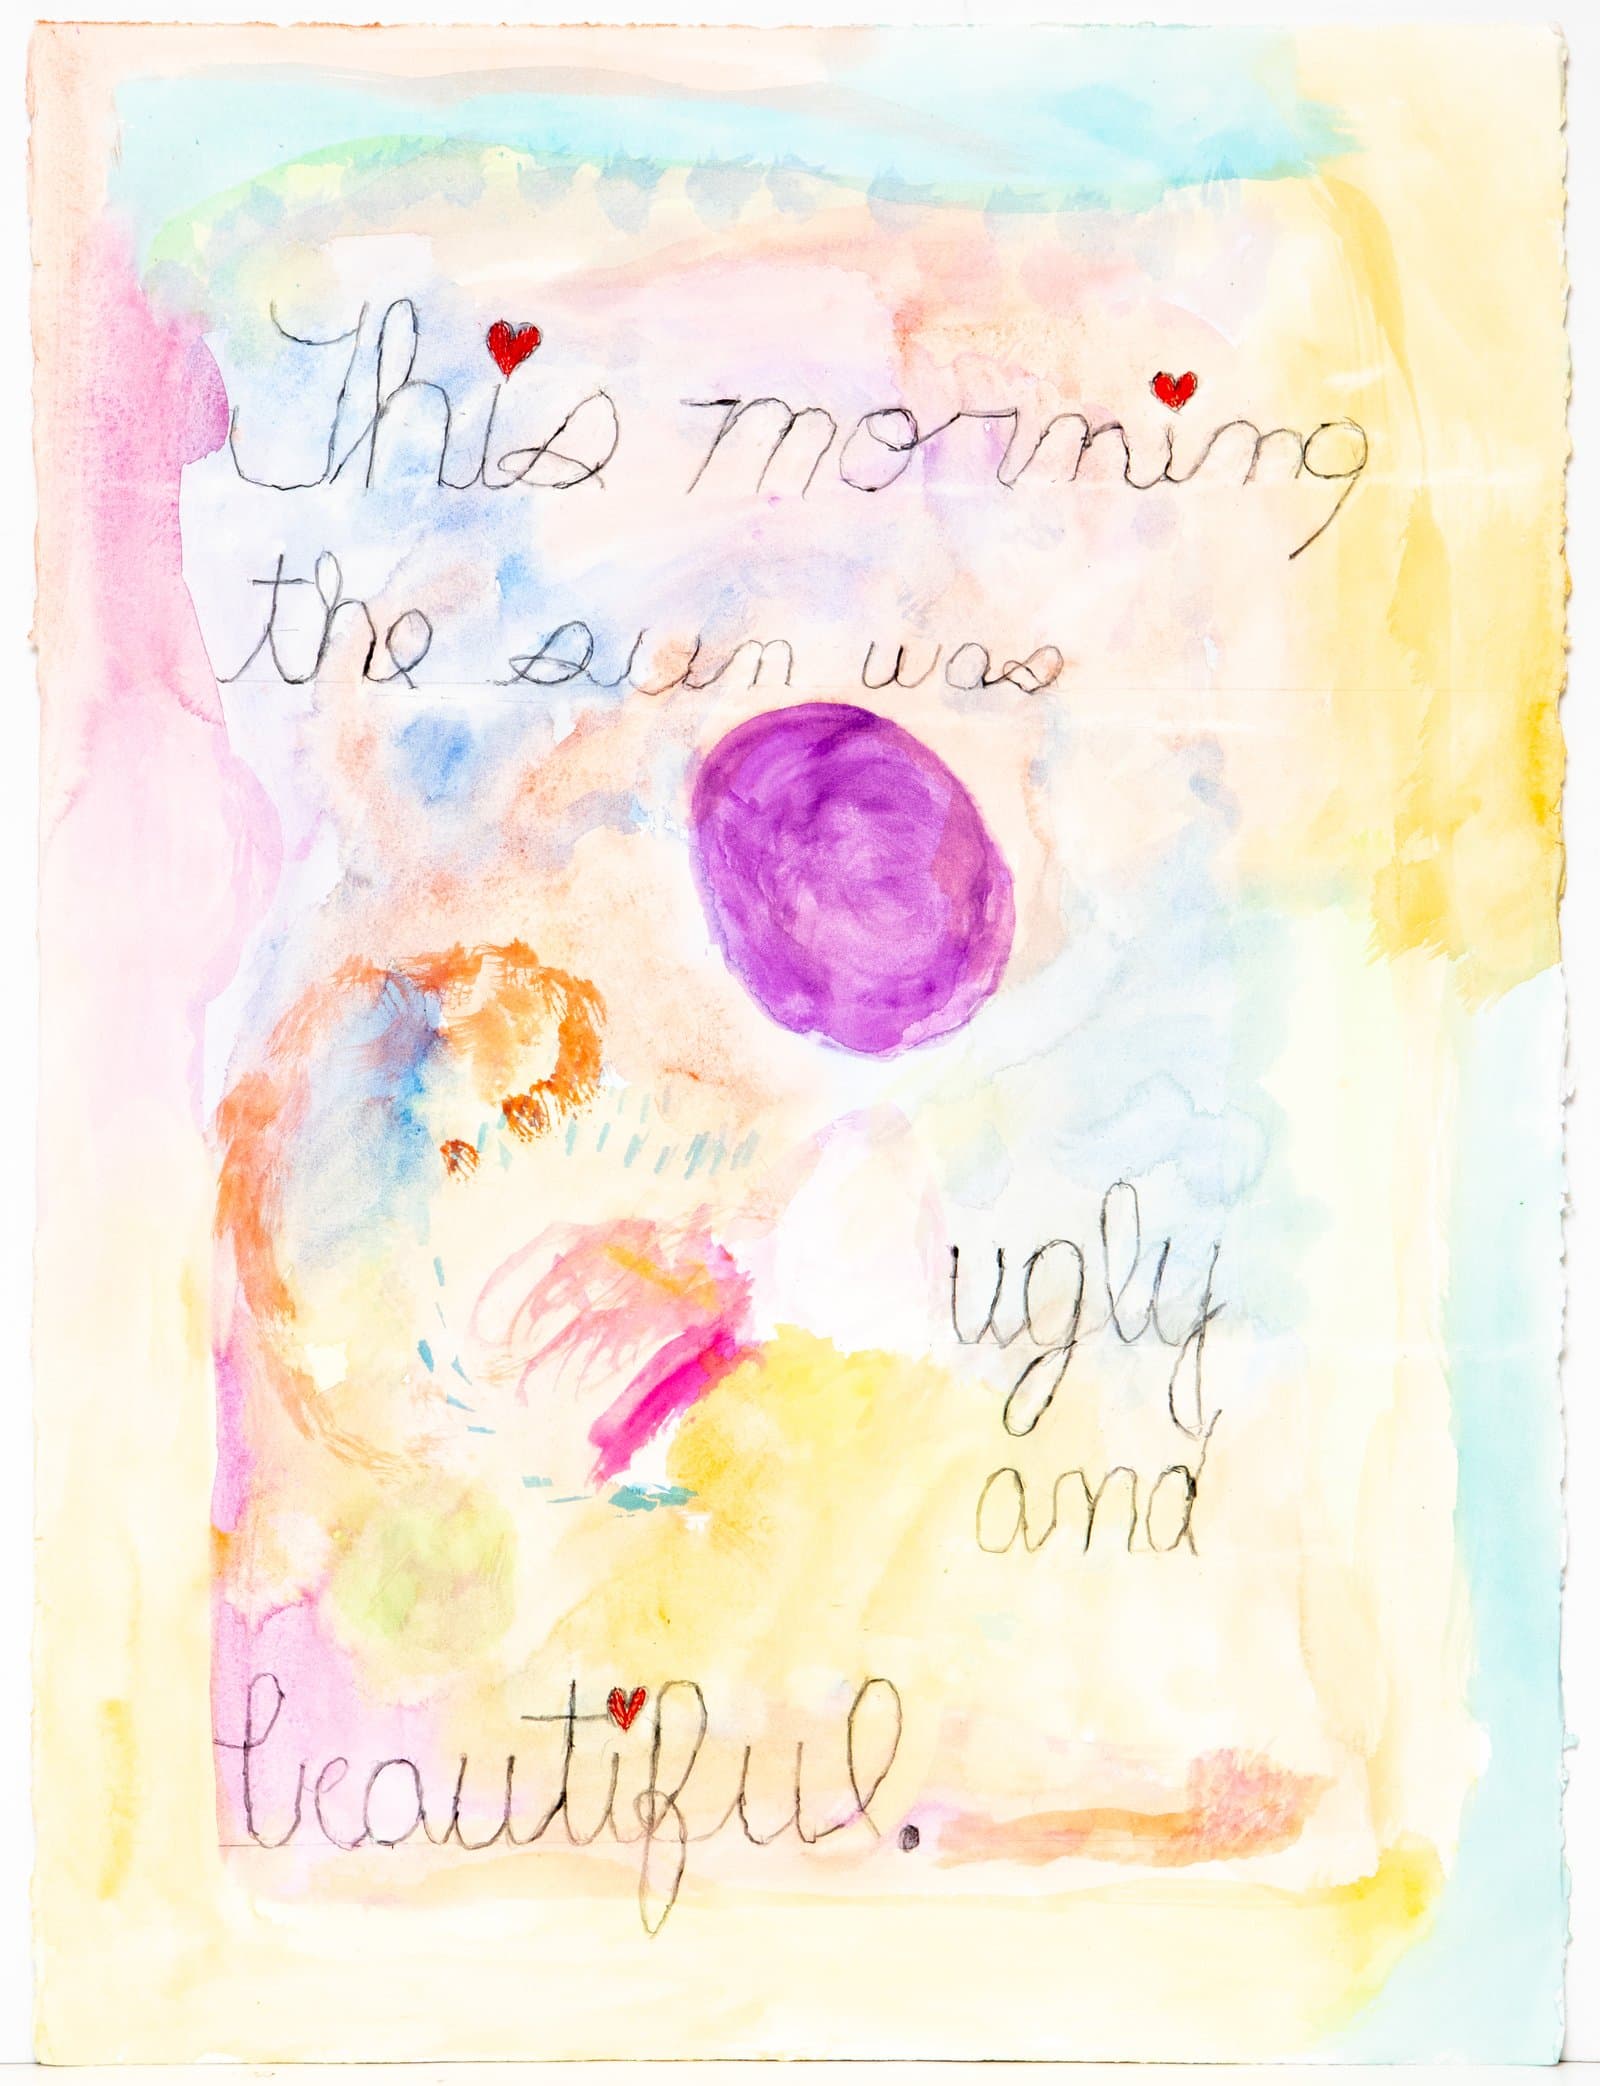 This morning
the sun was
ugly
and
beautiful.